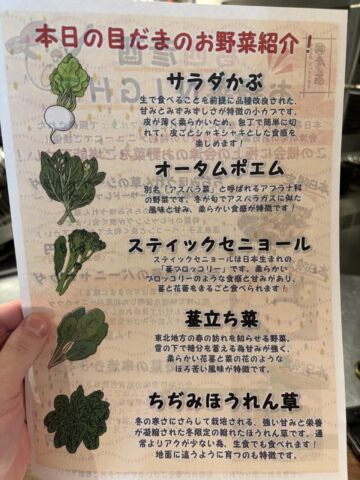 本日の目だまのお野菜紹介！
サラダかぶ
生で食べることを前提に品種改良された、
甘みとみずみずしさが特徴の小カブです。
皮が薄く柔らかいため、包丁で簡単に切
れて、皮ごとシャキシャキとした食感を
楽しめます！
オータムポエム
別名「アスパラ菜」と呼ばれるアブラナ科
の野菜です。冬が旬でアスパラガスに似た
風味と甘み、柔らかい食感が特徴です！
スティックセニョール
スティックセニョールは日本生まれの
「茎ブロッコリー」です。柔らかい
ブロッコリーのような食感と甘みがあり、
茎と花蕾をまるごと食べられます！
茎立ち菜
東北地方の春の訪れを知らせる野菜。
雪の下で糖分を蓄える為甘みが強く、
柔らかい花茎と菜の花のような
ほろ苦い風味が特徴です。
ちぢみほうれん草
冬の寒さにさらして栽培される、強い甘みと栄養
が凝縮された冬限定の縮れたほうれん草です。通
常よりアクが少ない為、生食でも食べれます！
地面に這うように育つのも特徴です。